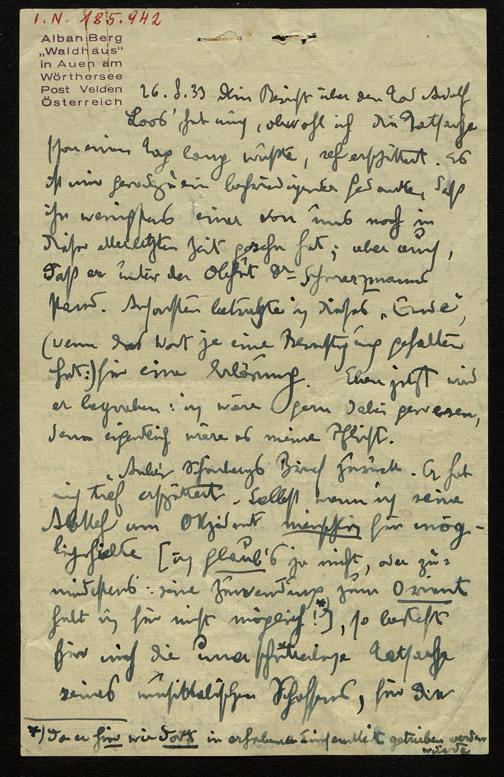 I.N. 185.942
Alban Berg
„Waldhaus"
in Auen am
Wörthersee
Post Velden
Österreich
26.8.33 Dein Bericht über den Tod Adolf
Loos' hat mich, obwohl ich die Tatsache
schon einen Tag lang wußte, sehr erschüttert. Es
ist mir geradezu ein befriedigender Gedanke, daß
ihn wenigstens einer von uns noch in
dieser allerletzten Zeit gesehn hat; aber auch,
daß er unter der Obhut Dr Schwarzmanns
stand. Ansonsten betrachte ich dieses „Ende",
(wenn das Wort je eine Berechtigung gehalten
hat:) für eine Erlösung. Eben jetzt wird
er begraben: ich wäre gern dabei gewesen,
denn eigentlich wäre es meine Pflicht.
Anbei Schönbergs Brief zurück. Er hat
mich tief erschüttert. Selbst wenn ich seine
Abkehr vom Okzident menschlich für mög-
lich hielte [ich glaub's ja nicht, oder zu-
mindestens: seine Zuwendung zum Orient
halt ich für nicht möglich!*)], so besteht
für mich die unerschütterliche Tatsache
seines musikalischen Schaffens, für die
*) da er hier wie dort in erhabene Einsamkeit getrieben werden
würde